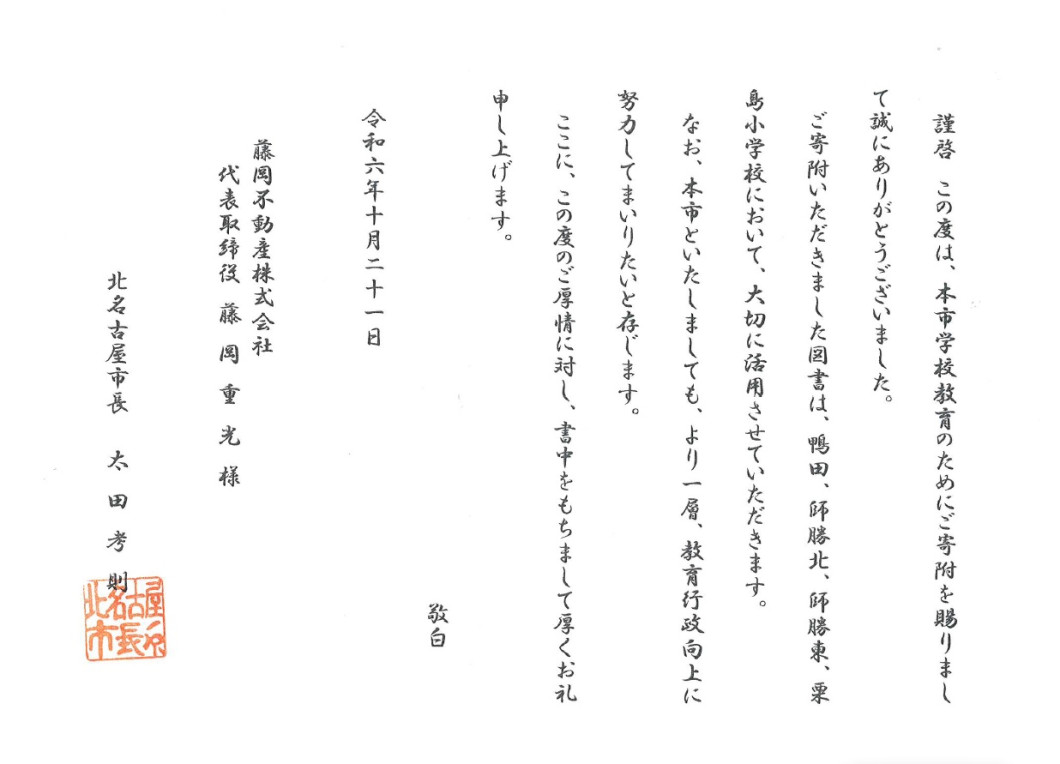 謹啓　この度は、本市学校教育のためにご寄附を賜りまし
て誠にありがとうございました。
ご寄附いただきました図書は、鴨田、師勝北、師勝東、栗
島小学校において、大切に活用させていただきます。
なお、本市といたしましても、より一層、教育行政向上に
努力してまいりたいと存じます。
ここに、この度のご厚情に対し、書中をもちまして厚くお礼
申し上げます。
敬白
令和六年十月二十一日
藤岡不動産株式会社
代表取締役　藤岡重光様
北名古屋市長　太田考則
北名古屋市長印